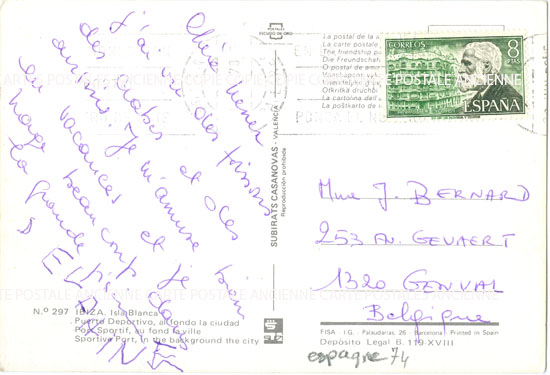 Chère
j'ai vu des poissons
des crabes et des
oursins. Je m'amuse bien
en vacances et je
nage beaucoup dans
la grande piscine
DELPHINE
Nº 297 IBIZA. Isla Blanca
Puerto Deportivo, al fondo la ciudad
Port Sportif, au fond la ville
Sportive Port, in the background the city
POSTALES
ESCUDO DE ORO
SUBIRATS CASANOVAS - VALENCIA
Reproducción prohibida
La postal de la
La carte postale
The friendship
Die Freundschaft
O postal de
La cartolina dell'
CORREOS
8
PTAS
ESPAÑA
CARTE POSTALE ANCIENNE
Mme J. BERNARD
253 AV. GEVAERT
1320 GENVAL
Belgique
FISA - I.G. Palaudarias, 26 - Barcelona - Printed in Spain
Depósito Legal B. 119-XVIII
espagne 74